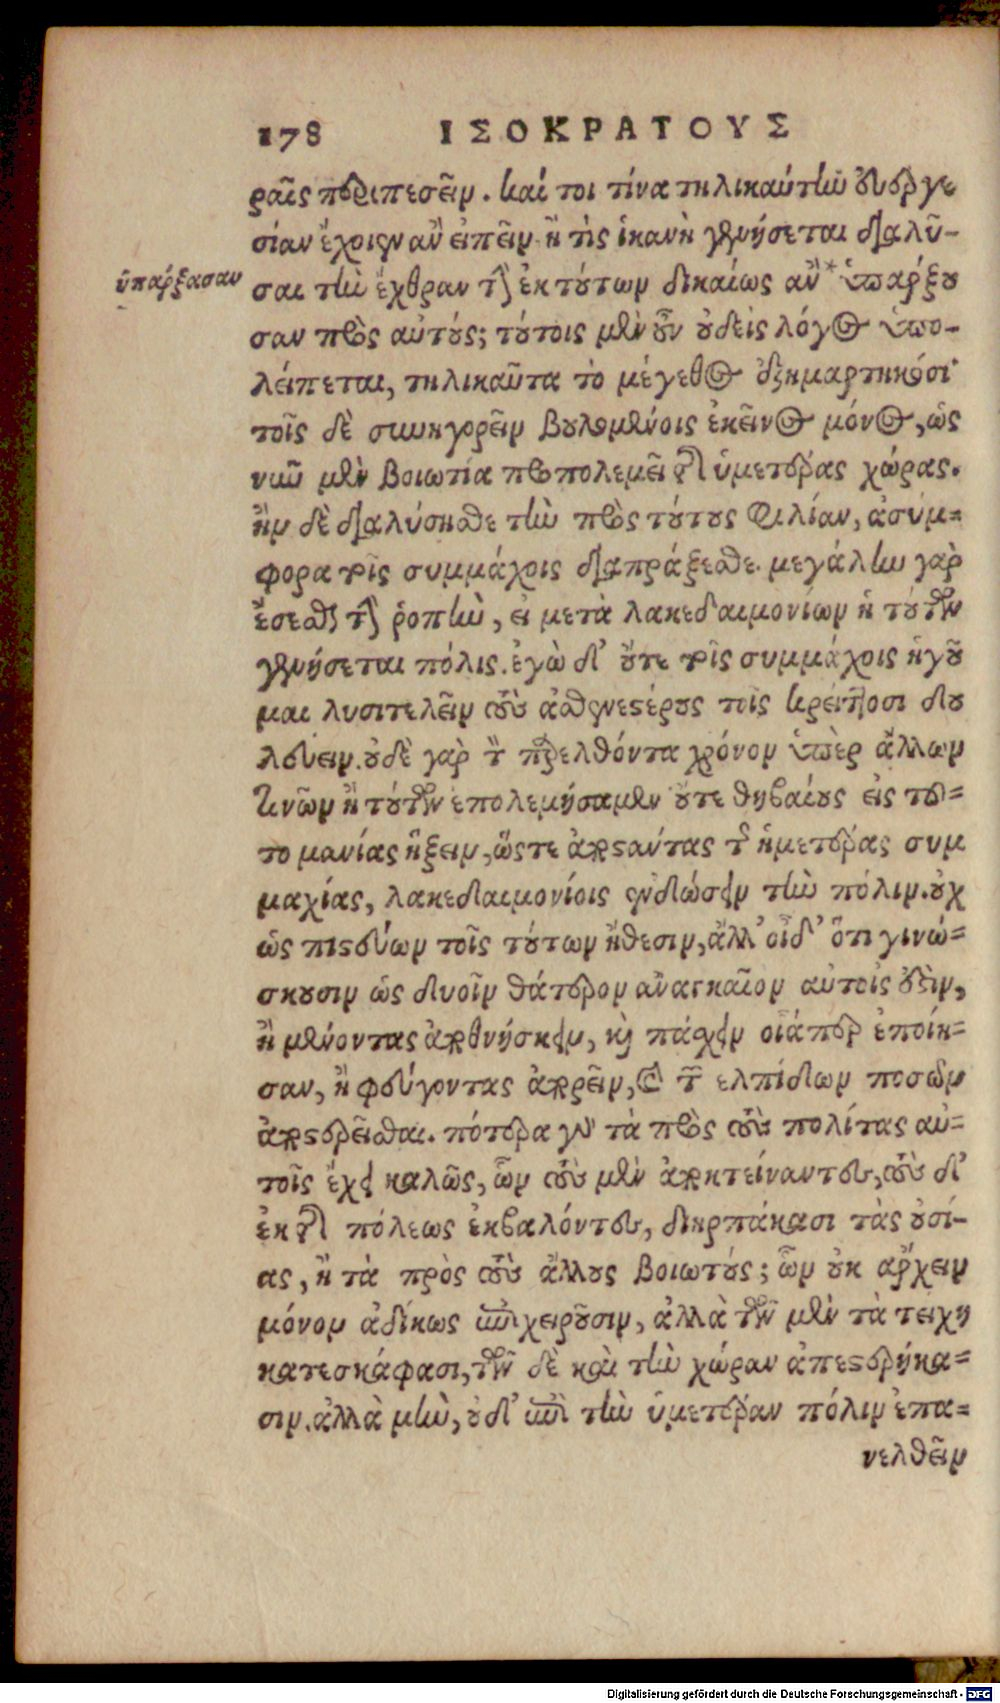 178 ΙΣΟΚΡΑΤΟΥΣ
ραῖς περιπεσεῖν. καί τοι τίνα τηλικαύτην εὐεργε
σίαν ἔχοιεν ἂν εἰπεῖν ἥ τις ἱκανὴ γενήσεται διαλῦ-
ὑπάρξασαν
σαι τὴν ἔχθραν τὴν ἐκ τούτων δικαίως ἂν * ὑπαρξου
σαν πρὸς αὐτούς; τούτοις μὲν οὖν οὐδεὶς λόγος ὑπο-
λείπεται, τηλικαῦτα τὸ μέγεθος ἐξημαρτηκόσι·
τοῖς δὲ συνηγορεῖν βουλομένοις ἐκεῖνος μόνος, ὡς
νῦν μὲν βοιωτία προπολεμεῖ τῆς ὑμετέρας χώρας.
ἢν δὲ διαλύσησθε τὴν πρὸς τούτους φιλίαν, ἀσύμ=
φορα τοῖς συμμάχοις διαπράξεσθε. μεγάλην γὰρ
ἔσεσθαι τὴν ῥοπὴν, εἰ μετὰ λακεδαιμονίων ἡ τούτων
γενήσεται πόλις. ἐγὼ δ' οὔτε τοῖς συμμάχοις ἡγοῦ
μαι λυσιτελεῖν τοὺς ἀσθενεστέρους τοῖς κρείττοσι δου
λεύειν. οὐδὲ γὰρ τὸν παρελθόντα χρόνον ὑπὲρ ἄλλων
τινῶν ἢ τούτων ἐπολεμήσαμεν οὔτε θηβαίους εἰς τοῦ=
το μανίας ἥξειν, ὥστε ἀποστάντας τῆς ἡμετέρας συμ
μαχίας, λακεδαιμονίοις ἐνδώσειν τὴν πόλιν. οὐχ
ὡς πιστεύων τοῖς τούτων ἤθεσιν, ἀλλ' οἶδ' ὅτι γινώ=
σκουσιν ὡς δυοῖν θάτερον ἀναγκαῖον αὐτοῖς ἐστιν,
ἢ μένοντας ἀποθνήσκειν, καὶ πάσχειν οἷάπερ ἐποίη=
σαν, ἢ φεύγοντας ἀπορεῖν, καὶ τῶν ἐλπίδων πασῶν
ἀποστερεῖσθαι. πότερα γὰρ τὰ πρὸς τοὺς πολίτας αὐ=
τοῖς ἔχει καλῶς, ὧν τοὺς μὲν ἀποκτείναντες, τοὺς δ'
ἐκ τῆς πόλεως ἐκβαλόντες, διηρπάκασι τὰς οὐσί-
ας, ἢ τὰ πρὸς τοὺς ἄλλους βοιωτούς; ὧν οὐκ ἄρχειν
μόνον ἀδίκως ἐπιχειροῦσιν, ἀλλὰ τῶν μὲν τὰ τείχη
κατεσκάφασι, τῶν δὲ καὶ τὴν χώραν ἀπεστερήκα=
σιν. ἀλλὰ μὴν, οὐδ' ἐπὶ τὴν ὑμετέραν πόλιν ἐπα=
νελθεῖν
Digitalisierung gefördert durch die Deutsche Forschungsgemeinschaft - DFG